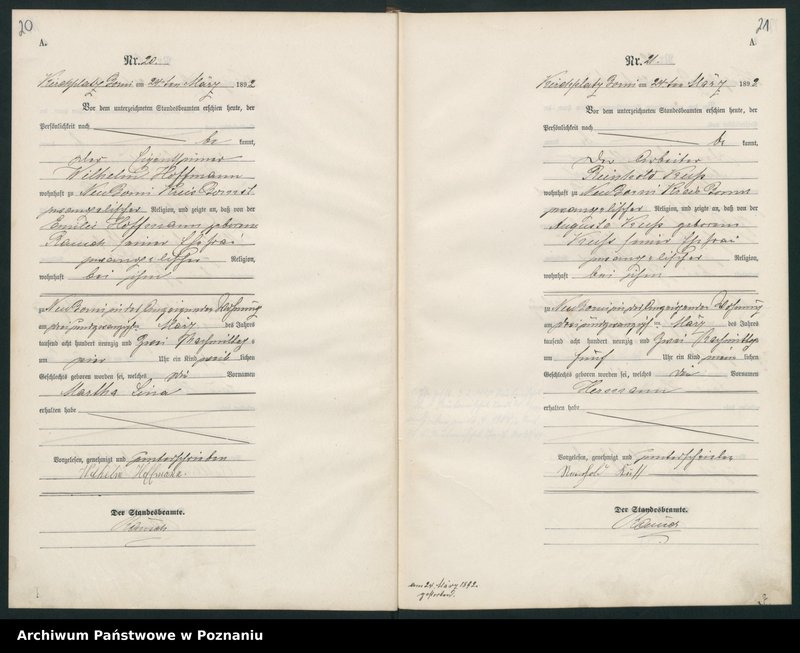 20
A.
Nr. 20.
Kirchplatz Bomi am 24ten März 1892
Vor dem unterzeichneten Standesbeamten erschien heute, der
Persönlichkeit nach
be kannt,
der Eigenthümer
Wilhelm Hoffmann
wohnhaft zu Neu Bomi Kreis Bomst
evangelischer Religion, und zeigte an, daß von der
Emilie Hoffmann geborene
Rausch seiner Ehefrau
evangelischer Religion,
wohnhaft bei ihm
zu Neu Bomi in des Anzeigenden Wohnung
am drei und zwanzigsten März des Jahres
tausend acht hundert neunzig und zwei Nachmittags
um vier Uhr ein Kind weib lichen
Geschlechts geboren worden sei, welches die Vornamen
Martha Lina
erhalten habe
Vorgelesen, genehmigt und unterschrieben
Wilhelm Hoffmann.
Der Standesbeamte.
21
A
Nr. 21.
Kirchplatz Bomi am 24ten März 1892.
Vor dem unterzeichneten Standesbeamten erschien heute, der
Persönlichkeit nach
be kannt,
der Arbeiter
Reinhold Kuss
wohnhaft zu Neu Bomi Kreis Bomst
evangelischer Religion, und zeigte an, daß von der
Augusta Kuss geborene
Kuss seiner Ehefrau
evangelischer Religion,
wohnhaft bei ihm
zu Neu Bomi in des Anzeigenden Wohnung
am drei und zwanzigsten März des Jahres
tausend acht hundert neunzig und zwei Nachmittags
um fünf Uhr ein Kind männ lichen
Geschlechts geboren worden sei, welches den Vornamen
Hermann
erhalten habe
Vorgelesen, genehmigt und unterschrieben
Reinhold Kuss
Der Standesbeamte.
am 24. März 1892.
gestorben.
Archiwum Państwowe w Poznaniu